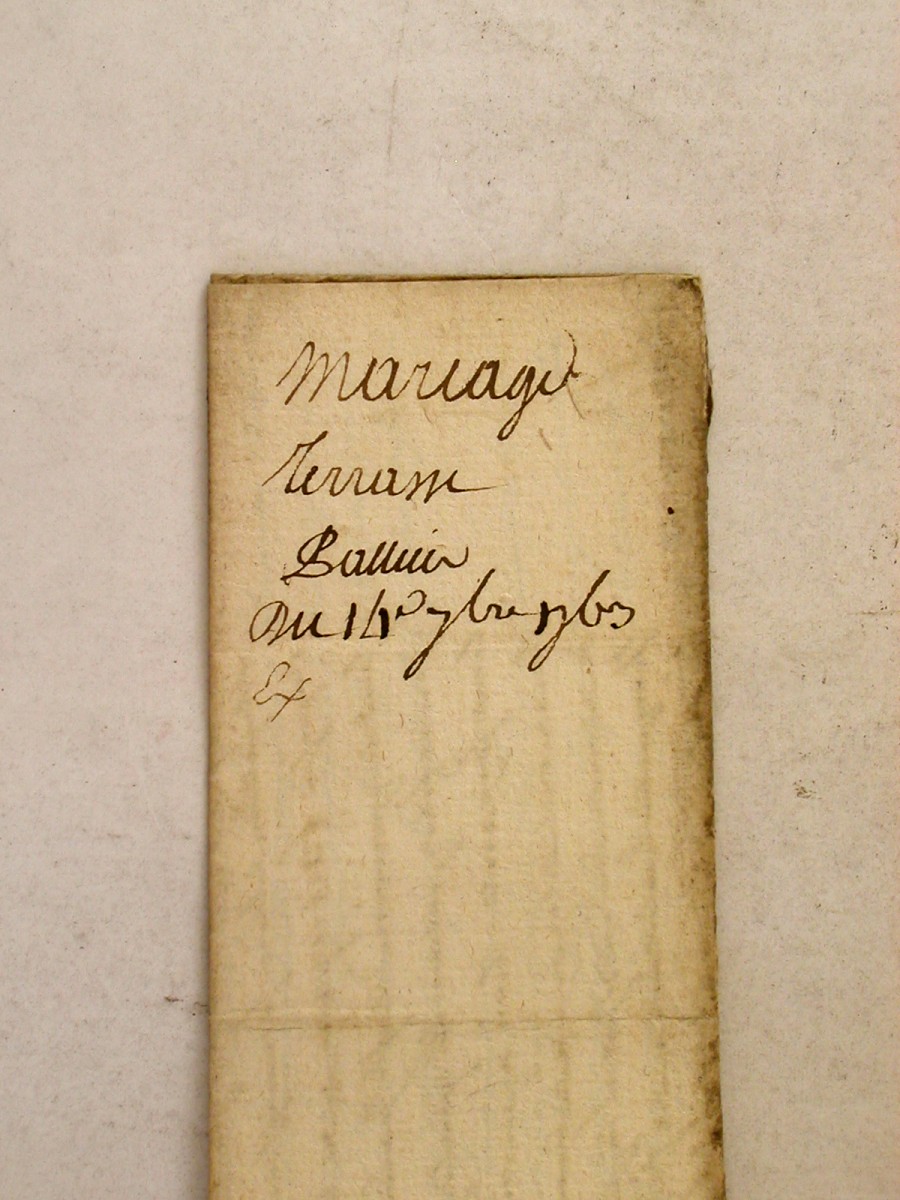 Mariage
Terrasse
Ballieu
Du 14e 7bre 1763
Ex